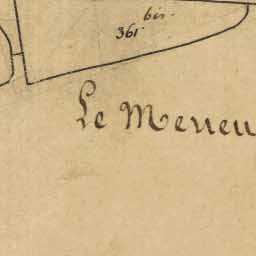 bis.
361.
Le Meneu